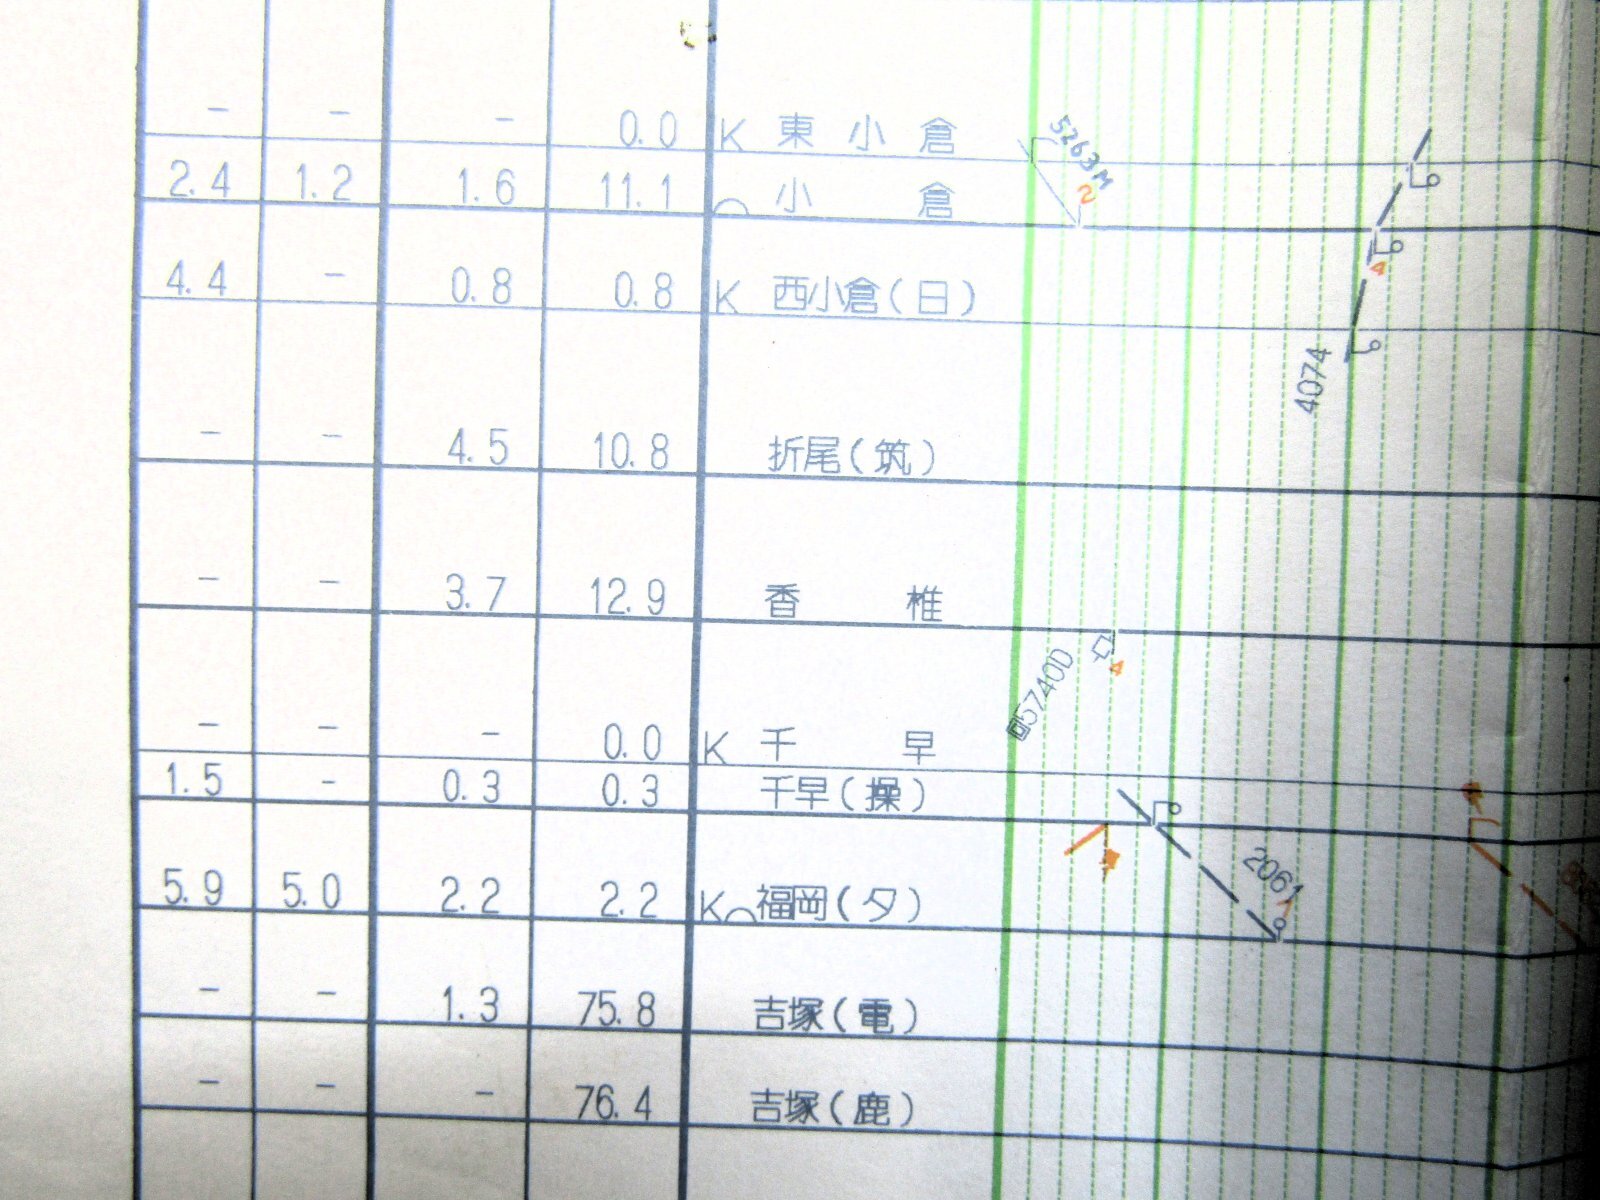 - - - 0.0 K 東小倉 5263M
2.4 1.2 1.6 11.1 小倉 2
4
4.4 - 0.8 0.8 K 西小倉(日)
4074
- - 4.5 10.8 折尾(筑)
- - 3.7 12.9 香椎
4
回5740D
- - - 0.0 K 千早
1.5 - 0.3 0.3 千早(操)
2061
5.9 5.0 2.2 2.2 K 福岡(タ)
- - 1.3 75.8 吉塚(電)
- - - 76.4 吉塚(鹿)